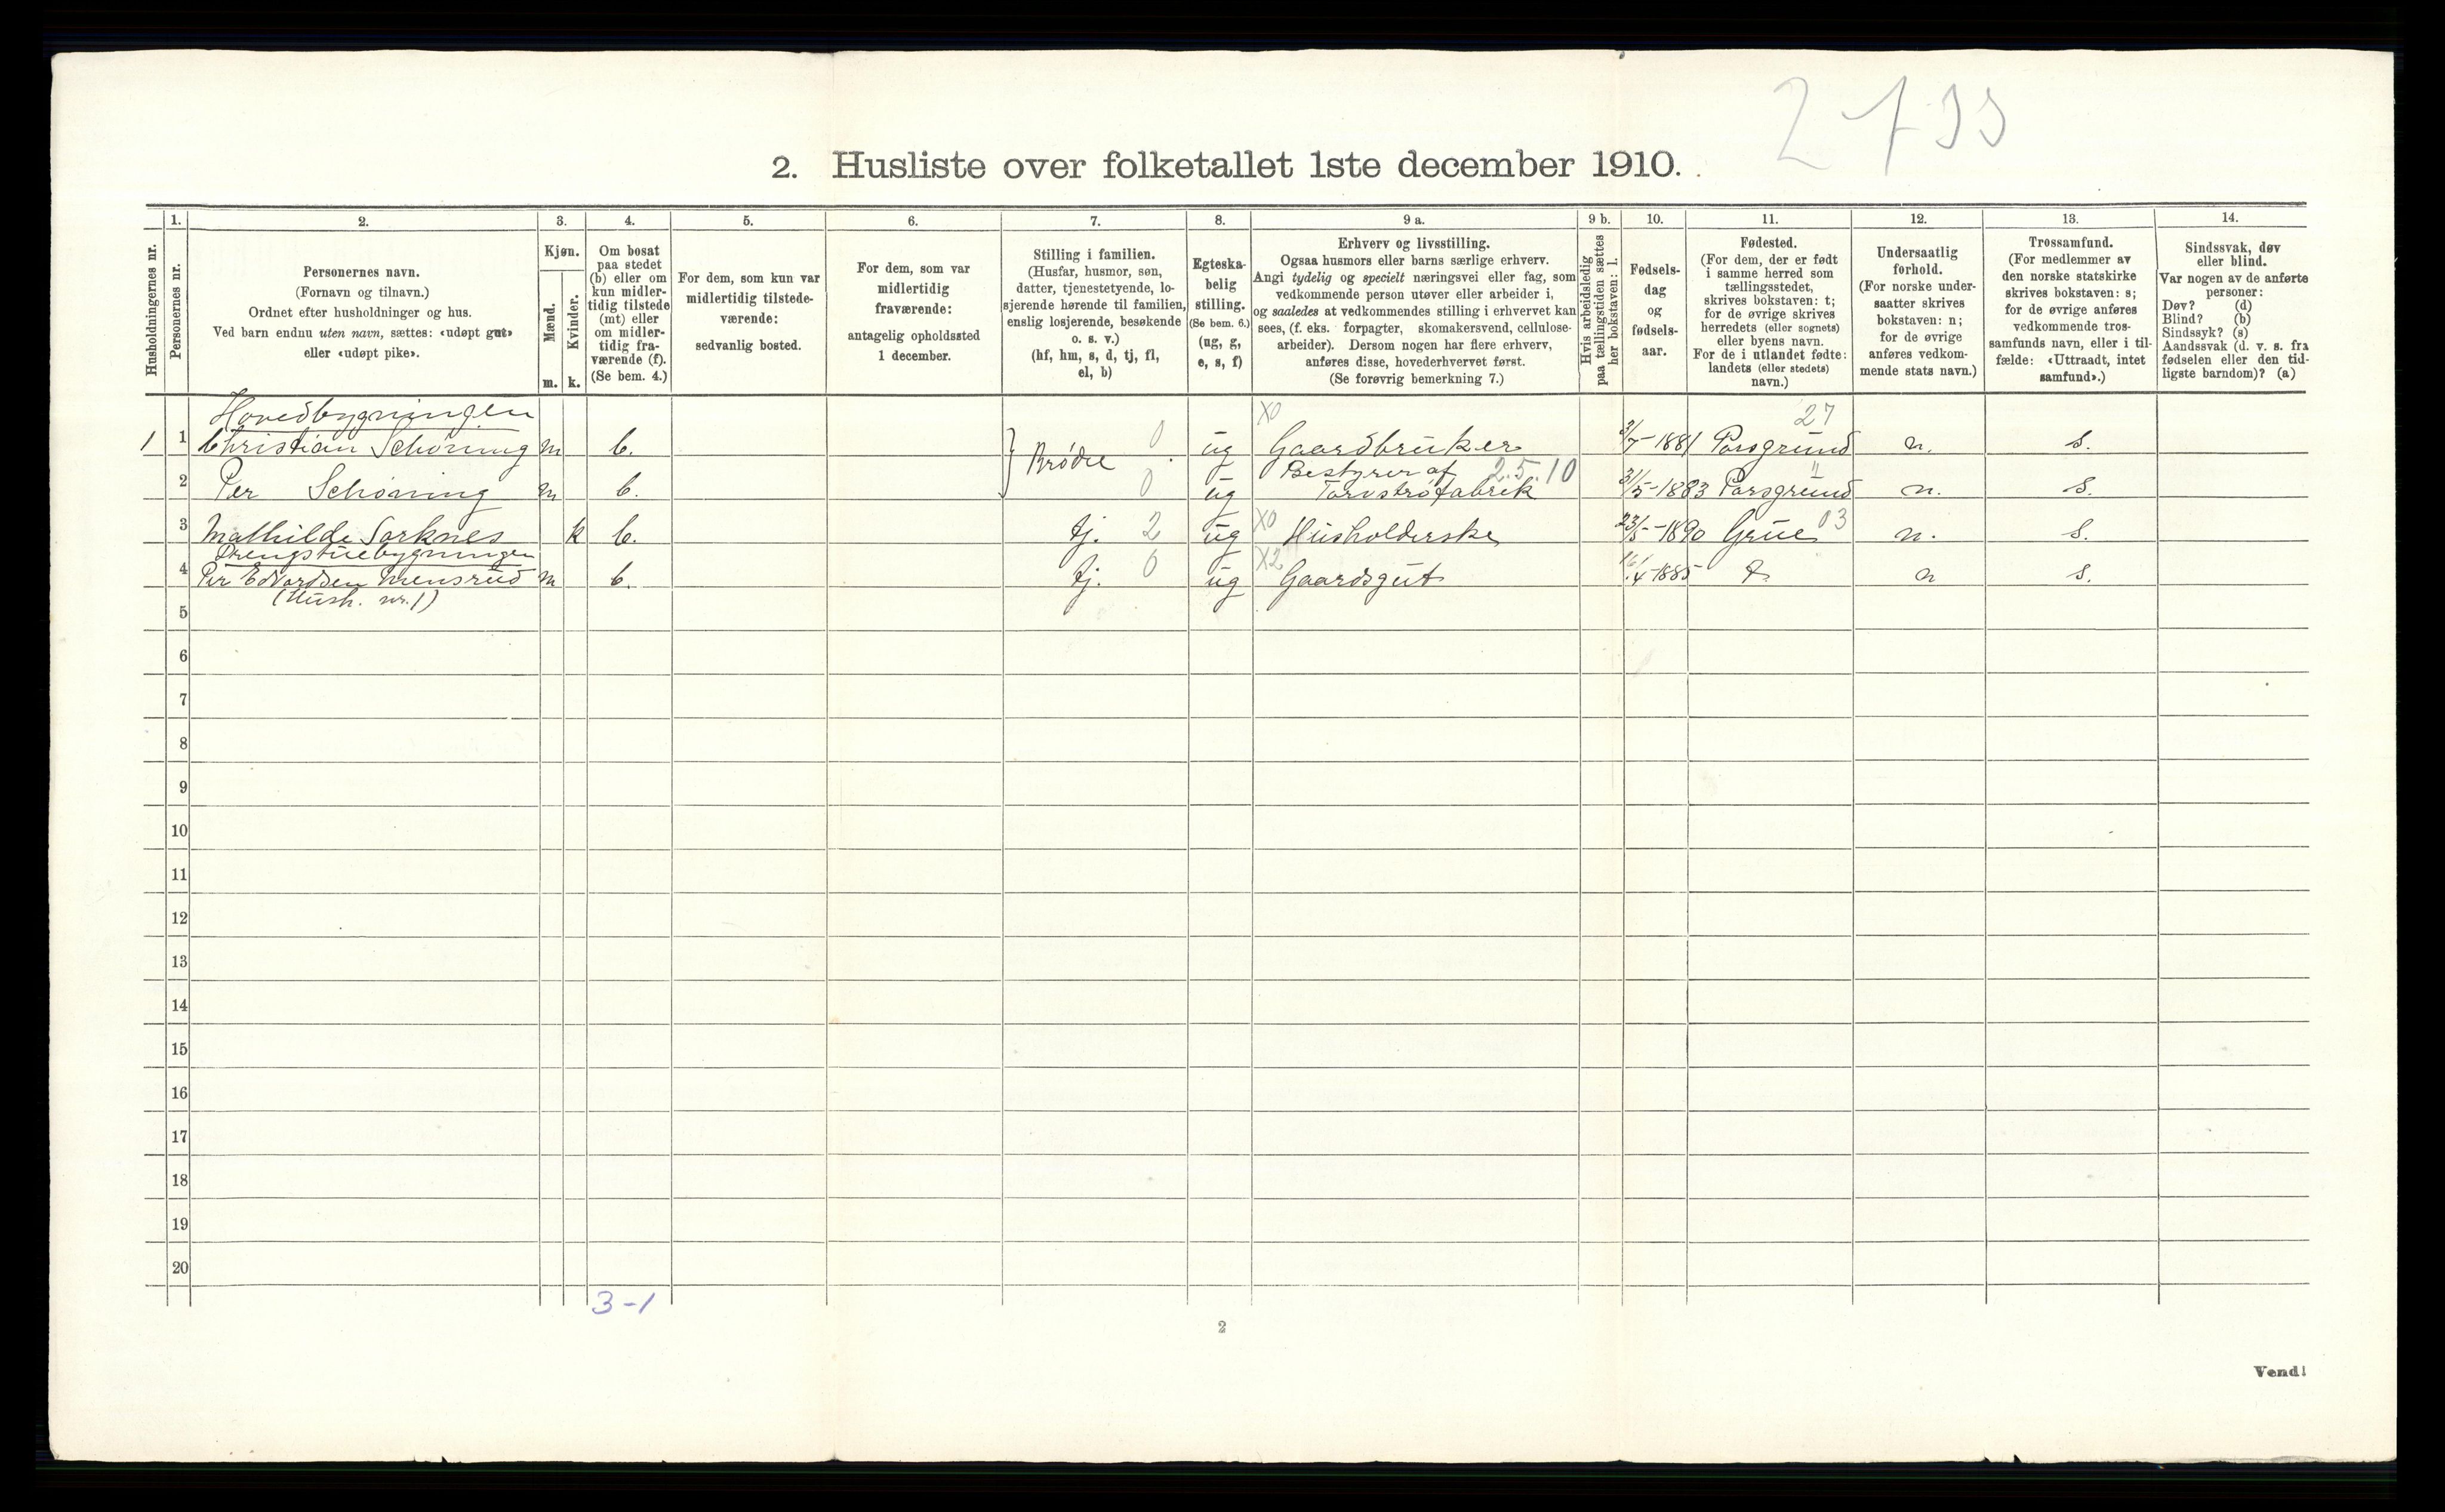 2 733
2. Husliste over folketallet 1ste december 1910.
Husholdningernes nr.
1.
Personernes nr.
2.
Personernes navn.
(Fornavn og tilnavn.)
Ordnet efter husholdninger og hus.
Ved barn endnu uten navn, sættes: «udøpt gut»
eller «udøpt pike».
3.
Kjøn.
Mænd.
Kvinder.
m. k.
4.
Om bosat
paa stedet
(b) eller om
kun midler-
tidig tilstede
(mt) eller
om midler-
tidig fra-
værende (f).
(Se bem. 4.)
5.
For dem, som kun var
midlertidig tilstede-
værende:
sedvanlig bosted.
6.
For dem, som var
midlertidig
fraværende:
antagelig opholdssted
1 december.
7.
Stilling i familien.
(Husfar, husmor, søn,
datter, tjenestetyende, lo-
sjerende hørende til familien,
enslig losjerende, besøkende
o. s. v.)
(hf, hm, s, d, tj, fl,
el, b)
8.
Egteska-
belig
stilling.
(Se bem. 6.)
(ug, g,
e, s, f)
9 a.
Erhverv og livsstilling.
Ogsaa husmors eller barns særlige erhverv.
Angi tydelig og specielt næringsvei eller fag, som
vedkommende person utøver eller arbeider i,
og saaledes at vedkommendes stilling i erhvervet kan
sees, (f. eks. forpagter, skomakersvend, cellulose-
arbeider). Dersom nogen har flere erhverv,
anføres disse, hovederhvervet først.
(Se forøvrig bemerkning 7.)
9 b.
Hvis arbeidsledig
paa tællingstiden sættes
her bokstaven: l.
10.
Fødsels-
dag
og
fødsels-
aar.
11.
Fødested.
(For dem, der er født
i samme herred som
tællingsstedet,
skrives bokstaven: t;
for de øvrige skrives
herredets (eller sognets)
eller byens navn.
For de i utlandet fødte:
landets (eller stedets)
navn.)
12.
Undersaatlig
forhold.
(For norske under-
saatter skrives
bokstaven: n;
for de øvrige
anføres vedkom-
mende stats navn.)
13.
Trossamfund.
(For medlemmer av
den norske statskirke
skrives bokstaven: s;
for de øvrige anføres
vedkommende tros-
samfunds navn, eller i til-
fælde: «Uttraadt, intet
samfund».)
14.
Sindssvak, døv
eller blind.
Var nogen av de anførte
personer:
Døv? (d)
Blind? (b)
Sindssyk? (s)
Aandssvak (d. v. s. fra
fødselen eller den tid-
ligste barndom)? (a)
Hovedbygningen X0 27
1 1 Christian Schøning m b. Brødre 0 ug Gaardbruker 3/7-1881 Porsgrund n. s.
Bestyrer af 2.5.10 "
2 Per Schøning m b. 0 ug Torvstrøfabrik 31/5-1883 Porsgrund n. s.
3 Mathilde Sorknes k b. tj. 2 ug X0 Husholderske 23/5-1890 Grue 03 n. s.
Drengstuebygningen
4 Per Edvardsen m b. tj. 0 ug X2 Gaardsgut 16/4-1885 t n s.
(Hush. nr. 1)
5
6
7
8
9
10
11
12
13
14
15
16
17
18
19
20
3-1
2
Vend!